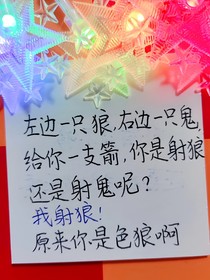 左边一只狼,右边一只鬼,
给你一支箭,你是射狼
还是射鬼呢?
我射狼!
原来你是色狼啊